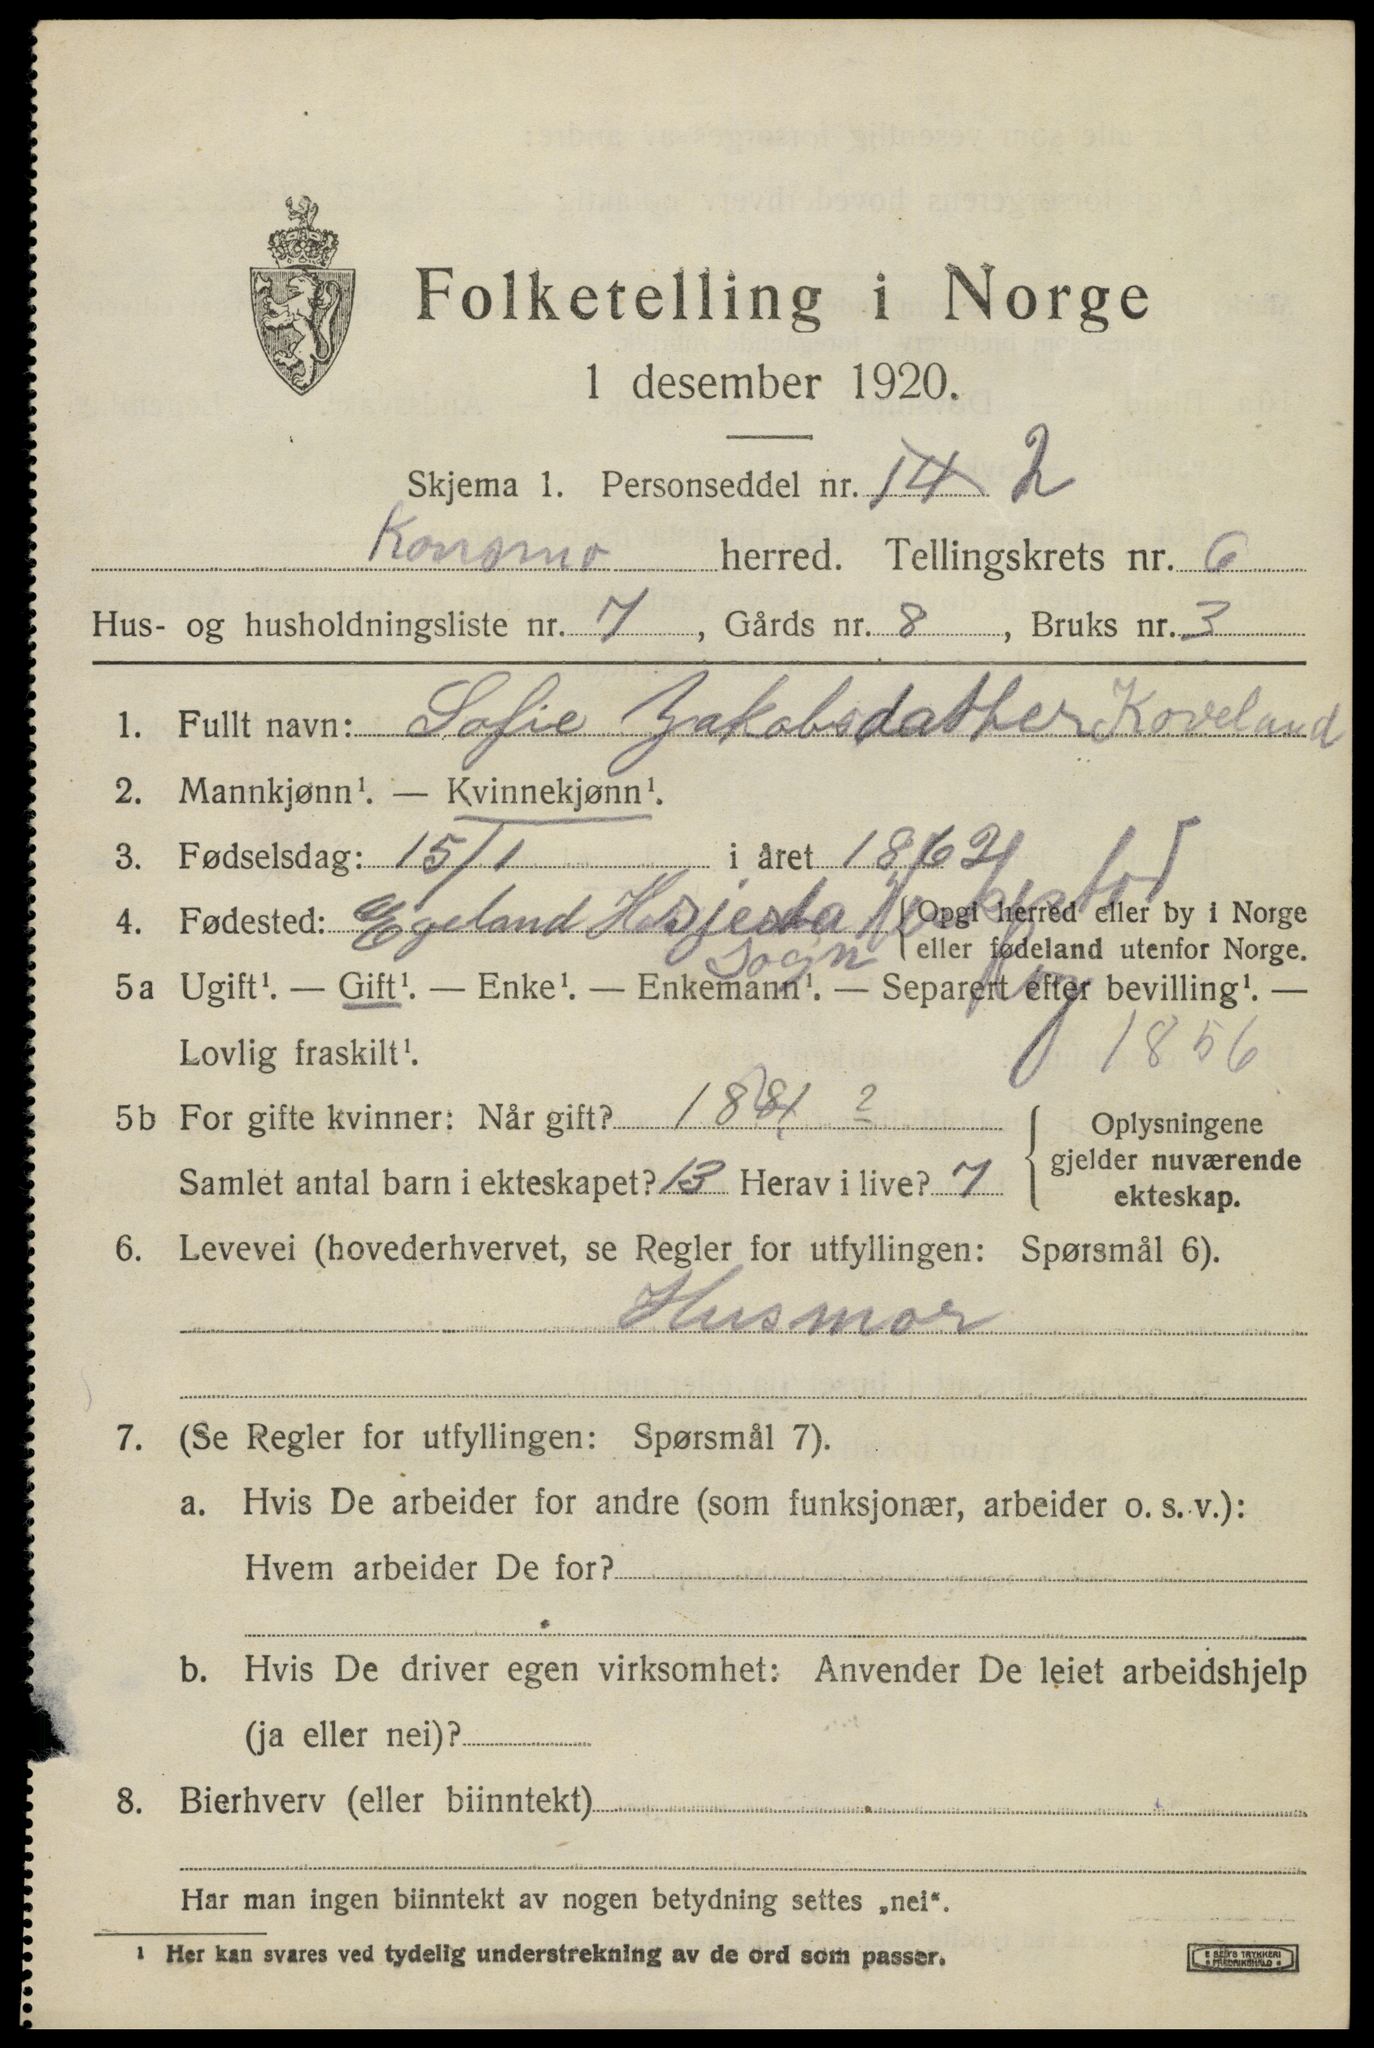 Folketelling i Norge
1 desember 1920.
Skjema 1. Personseddel nr. 14 2
Konsmo herred. Tellingskrets nr. 6
Hus- og husholdningsliste nr. 7, Gårds nr. 8, Bruks nr. 3
1. Fullt navn: Sofie Jakobsdatter Koveland
2. Mannkjønn¹. — Kvinnekjønn¹.
3. Fødselsdag: 15/1 i året 1862
4. Fødested: Egeland {Opgi herred eller by i Norge
sogn eller fødeland utenfor Norge.
5a Ugift¹. — Gift¹. — Enke¹. — Enkemann¹. — Separert efter bevilling¹. —
Lovlig fraskilt¹. 1856
5b For gifte kvinner: Når gift? 1881 ? Oplysningene
Samlet antal barn i ekteskapet? 13 Herav i live? 7 gjelder nuværende
ekteskap.
6. Levevei (hovederhvervet, se Regler for utfyllingen: Spørsmål 6).
Husmor
7. (Se Regler for utfyllingen: Spørsmål 7).
a. Hvis De arbeider for andre (som funksjonær, arbeider o. s. v.):
Hvem arbeider De for?
b. Hvis De driver egen virksomhet: Anvender De leiet arbeidshjelp
(ja eller nei)?
8. Bierhverv (eller biinntekt)
Har man ingen biinntekt av nogen betydning settes „nei“.
¹ Her kan svares ved tydelig understrekning av de ord som passer.
E SEM'S TRYKKERI
FREDRIKSHALD